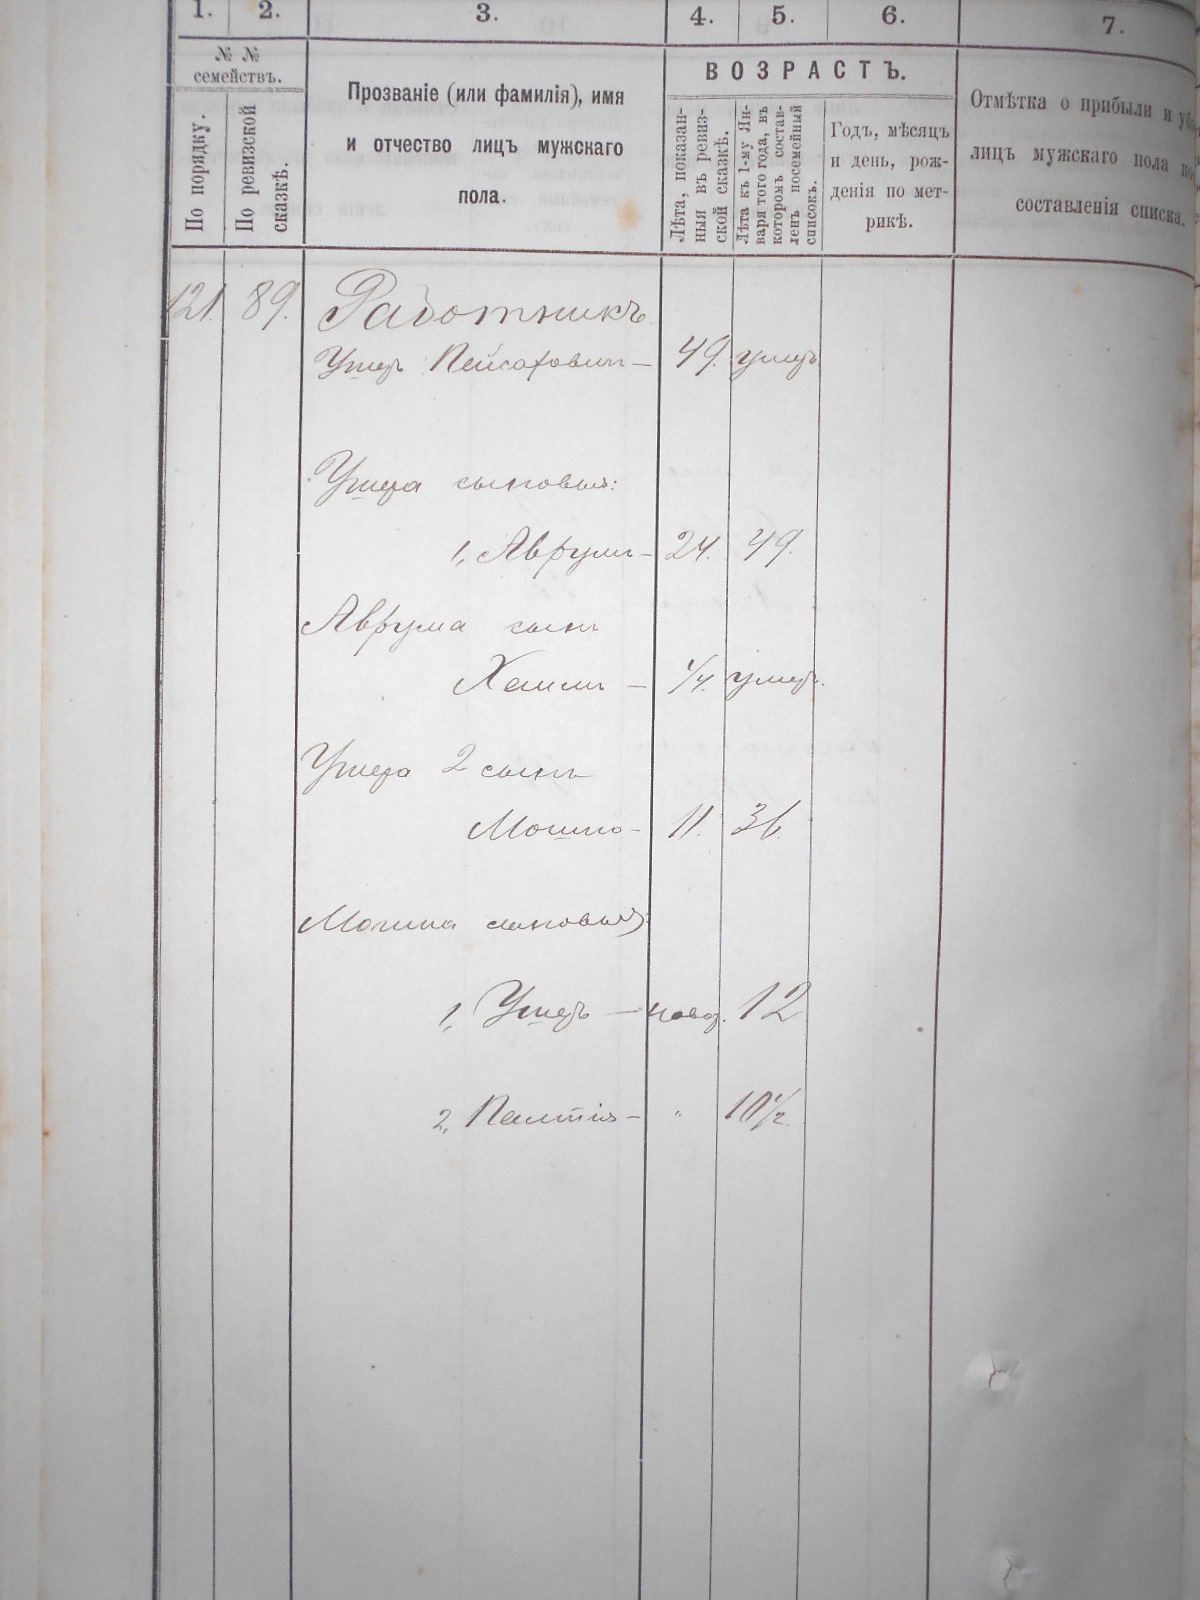 1. 2. 3. 4. 5. 6. 7.
№ №
семействъ.
По порядку.
По ревизской
сказкѣ.
Прозваніе (или фамилія), имя
и отчество лицъ мужскаго
пола.
ВОЗРАСТЪ.
Лѣта, показан-
ныя въ ревиз-
ской сказкѣ.
Лѣта къ 1-му Ян-
варя того года, въ
которомъ состав-
ленъ посемейный
списокъ.
Годъ, мѣсяцъ
и день, рож-
денія по мет-
рикѣ.
Отмѣтка о прибыли и
лицъ мужскаго пола
составленія списка.
121. 89. Работникъ
Ушеръ Пейсаховичъ — 49. умеръ
Ушера сыновья:
1, Аврумъ — 24. 49.
Аврума сынъ
— 1/4. умеръ.
Ушера 2 сынъ
Мошко — 11. 36.
Мошка сыновья:
1, Ушеръ — новор. 12
2, — " 10 1/2.